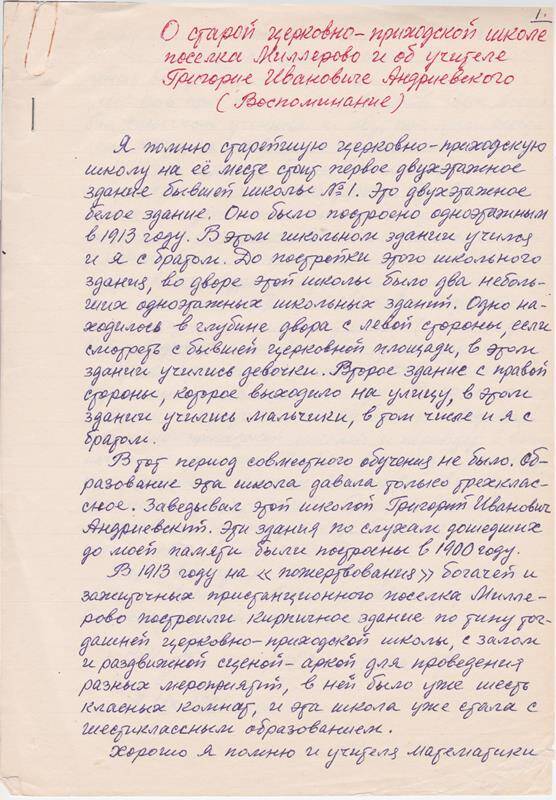 1.
О старой церковно-приходской школе
поселка Миллерово и об учителе
Григорие Ивановиче Андриевского
(Воспоминание)
Я помню старейшую церковно-приходскую
школу на её месте стоит первое двухэтажное
здание бывшей школы №1. Это двухэтажное
белое здание. Оно было построено одноэтажным
в 1913 году. В этом школьном здании учился
и я с братом. До постройки этого школьного
здания, во дворе этой школы было два неболь-
ших одноэтажных школьных зданий. Одно на-
ходилось в глубине двора с левой стороны, если
смотреть с бывшей церковной площади, в этом
здании учились девочки. Второе здание с правой
стороны, которое выходило на улицу, в этом
здании учились мальчики, в том числе и я с
братом.
В тот период совместного обучения не было. Об-
разование эта школа давала только трехклас-
сное. Заведывал этой школой Григорий Иванович
Андриевский. Эти здания по слухам дошедших
до моей памяти были построены в 1900 году.
В 1913 году на «пожертвования» богачей и
зажиточных пристанционного поселка Милле-
рово построили кирпичное здание по типу тог-
дашней церковно-приходской школы, с залом
и раздвижной сценой-аркой для проведения
разных мероприятий, в ней было уже шесть
класных комнат, и эта школа уже стала с
шестиклассным образованием.
Хорошо я помню и учителя математики